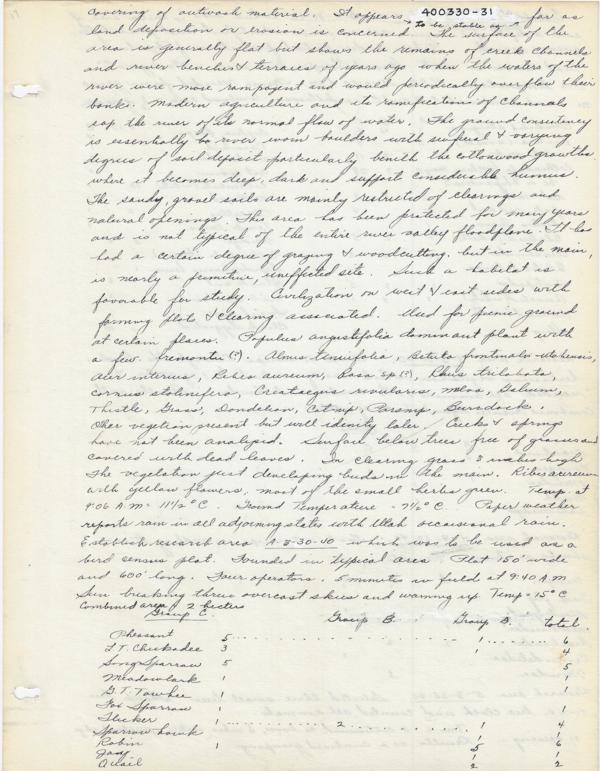 400330-31
covering of outwash material. It appears "to be stable as" far as
land deposition or erosion is concerned. The surface of the
area is generally flat but shows the remains of creek channels
and river benches & terraces of years ago when the waters of the
river were more rampagent and would periodically overflow their
banks. Modern agriculture and its ramifications of channels
sap the river of its normal flow of water. The ground consistency
is essentially to river worn boulders with surficial & varying
degrees of soil deposit particularly beneith the cottonwood growths
where it becomes deep, dark and support considerable humus.
The sandy, gravel soils are mainly restricted of clearings and
natural openings. This area has been protected for many years
and is not typical of the entire river valley floodplane. It has
had a certain degree of grazing & woodcutting, but in the main,
is nearly a primitive, uneffected site. Such a habitat is
favorable for study. Civilization on west & east sides with
farming plots & clearing associated. Used for picnic ground
at certain places. Populus angustifolia dominant plant with
a few fremontia (?). Alnus tenuifolia, Betula fontinalis-utahensis,
Acer interius, Ribes aureum, Rosa sp (?), Rhus trilobata,
cornus stolinifera, Crataegus rivularis, Galium,
Thistle, Grass, Dandelion, Catnip, Parsnip, Burdock.
Other vegetion present but will idenity later. Creeks & springs
have not been analized. Surface below trees free of grasses and
covered with dead leaves. In clearing grass 3 inches high
The vegetation just developing buds in the main. Ribes aureum
with yellow flowers, most of the small herbs green. Temp. at
9:06 A.M = 11½° C. Ground Temperature = 7½° C. Paper weather
reports rain in all adjoining states with Utah occasional rain.
Establish research area A-3-30-40 which was to be used as a
bird census plot. Founded in typical area. Plot 150' wide
and 600' long. Four operators. 5 minutes in field at 9:40 A.M
Sun breaking thru overcast skies and warming up Temp = 15° C
Combined area 2 hecters
Group C. Group B. Group D. total
Pheasant 5 1 6
L.T. Chickadee 3 1 4
Song Sparrow 5 5
Meadowlark 1 1
G.T. Towhee 1 1
Fox Sparrow 1 1
Flicker 1 2 1 4
Sparrow hawk 1 1
Robin 1 5 6
Jay 2 2
Quail